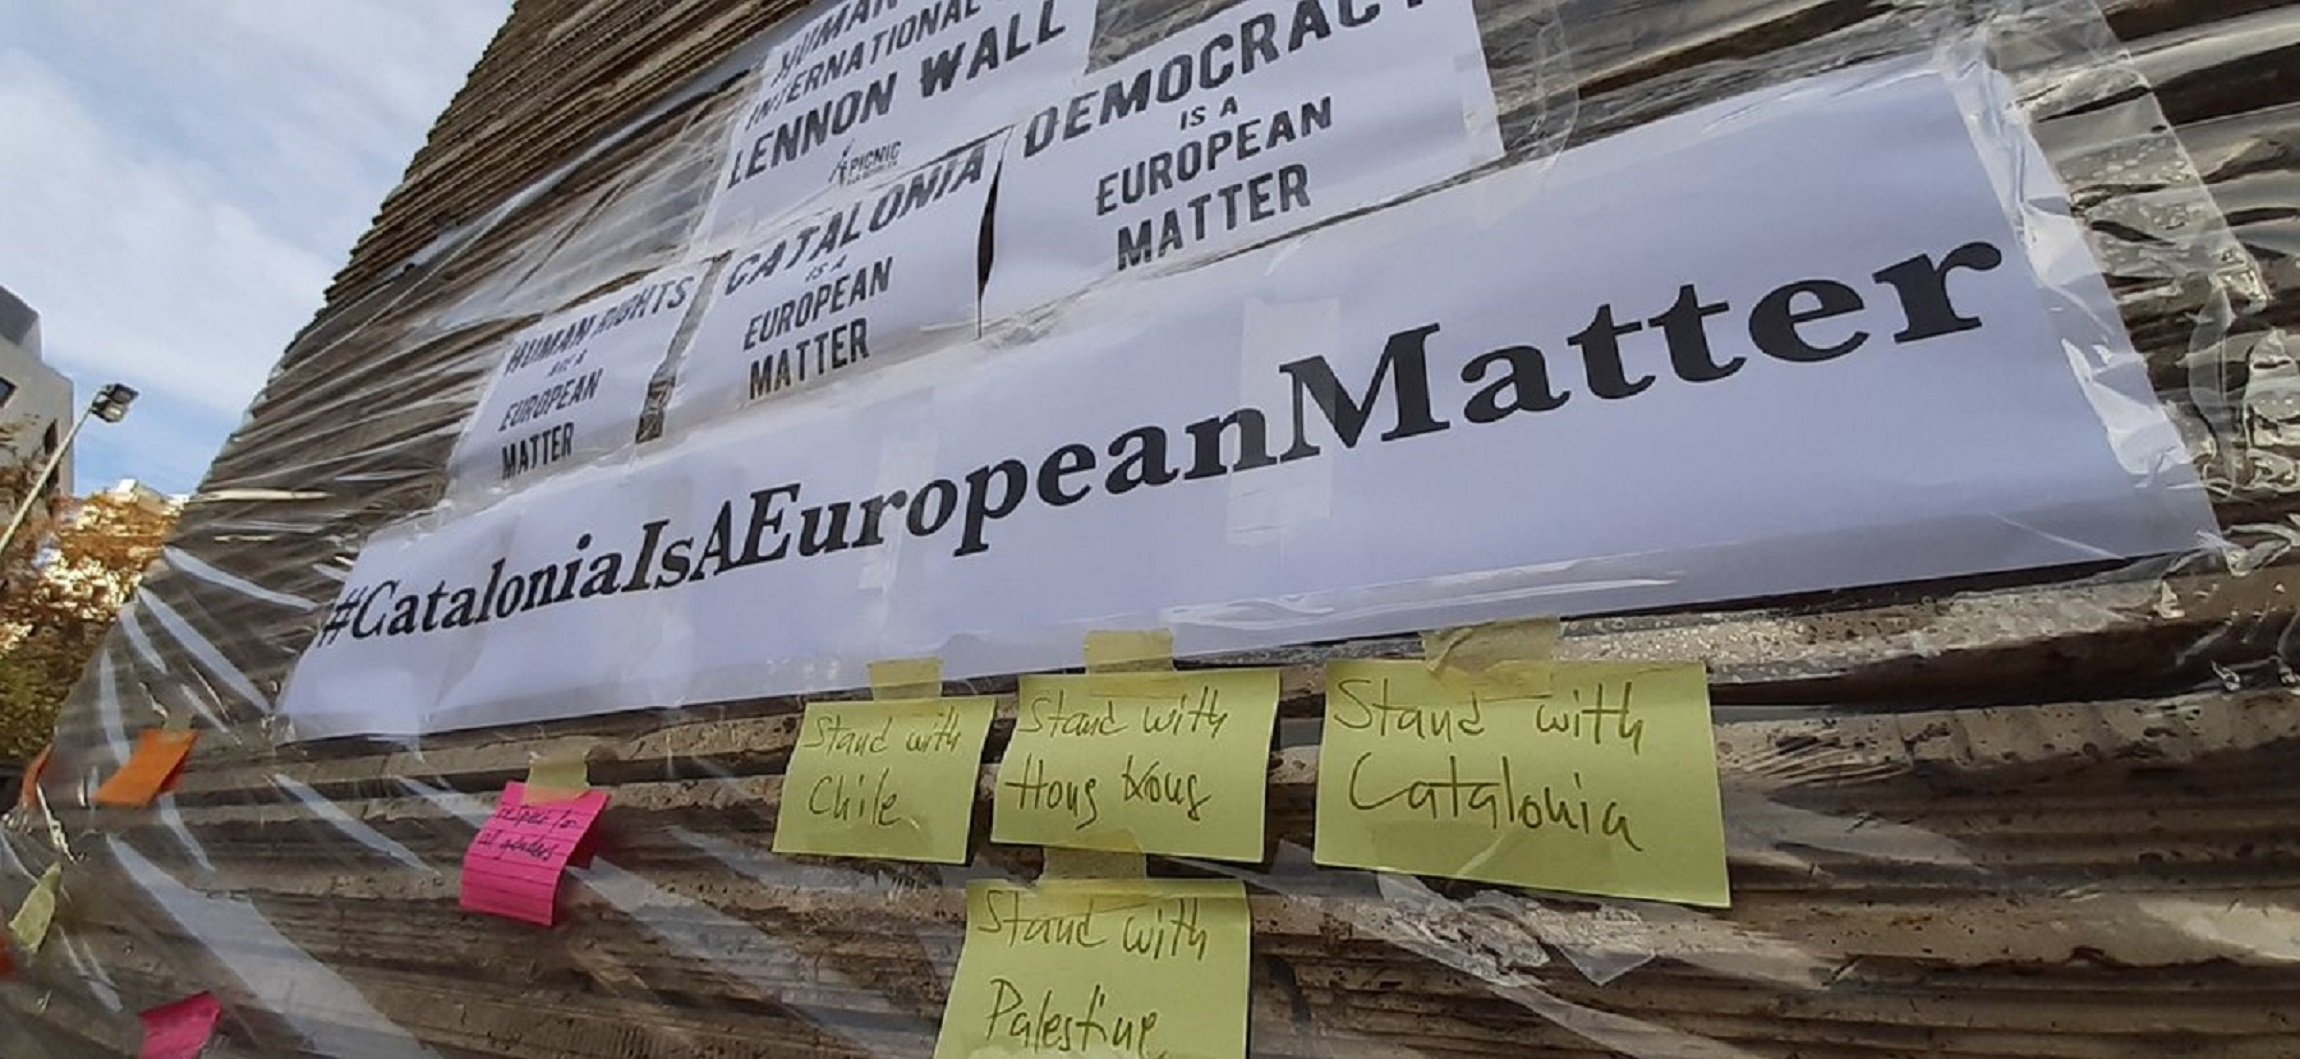 HUMAN
INTERNATIONAL
LENNON WALL
PICNIC
DEMOCRACY
IS A
EUROPEAN
MATTER
CATALONIA
IS A
EUROPEAN
MATTER
HUMAN RIGHTS
ARE A
EUROPEAN
MATTER
#CataloniaIsAEuropeanMatter
Stand with
Chile
Stand with
Hong Kong
Stand with
Catalonia
respect for
all genders
Stand with
Palestine